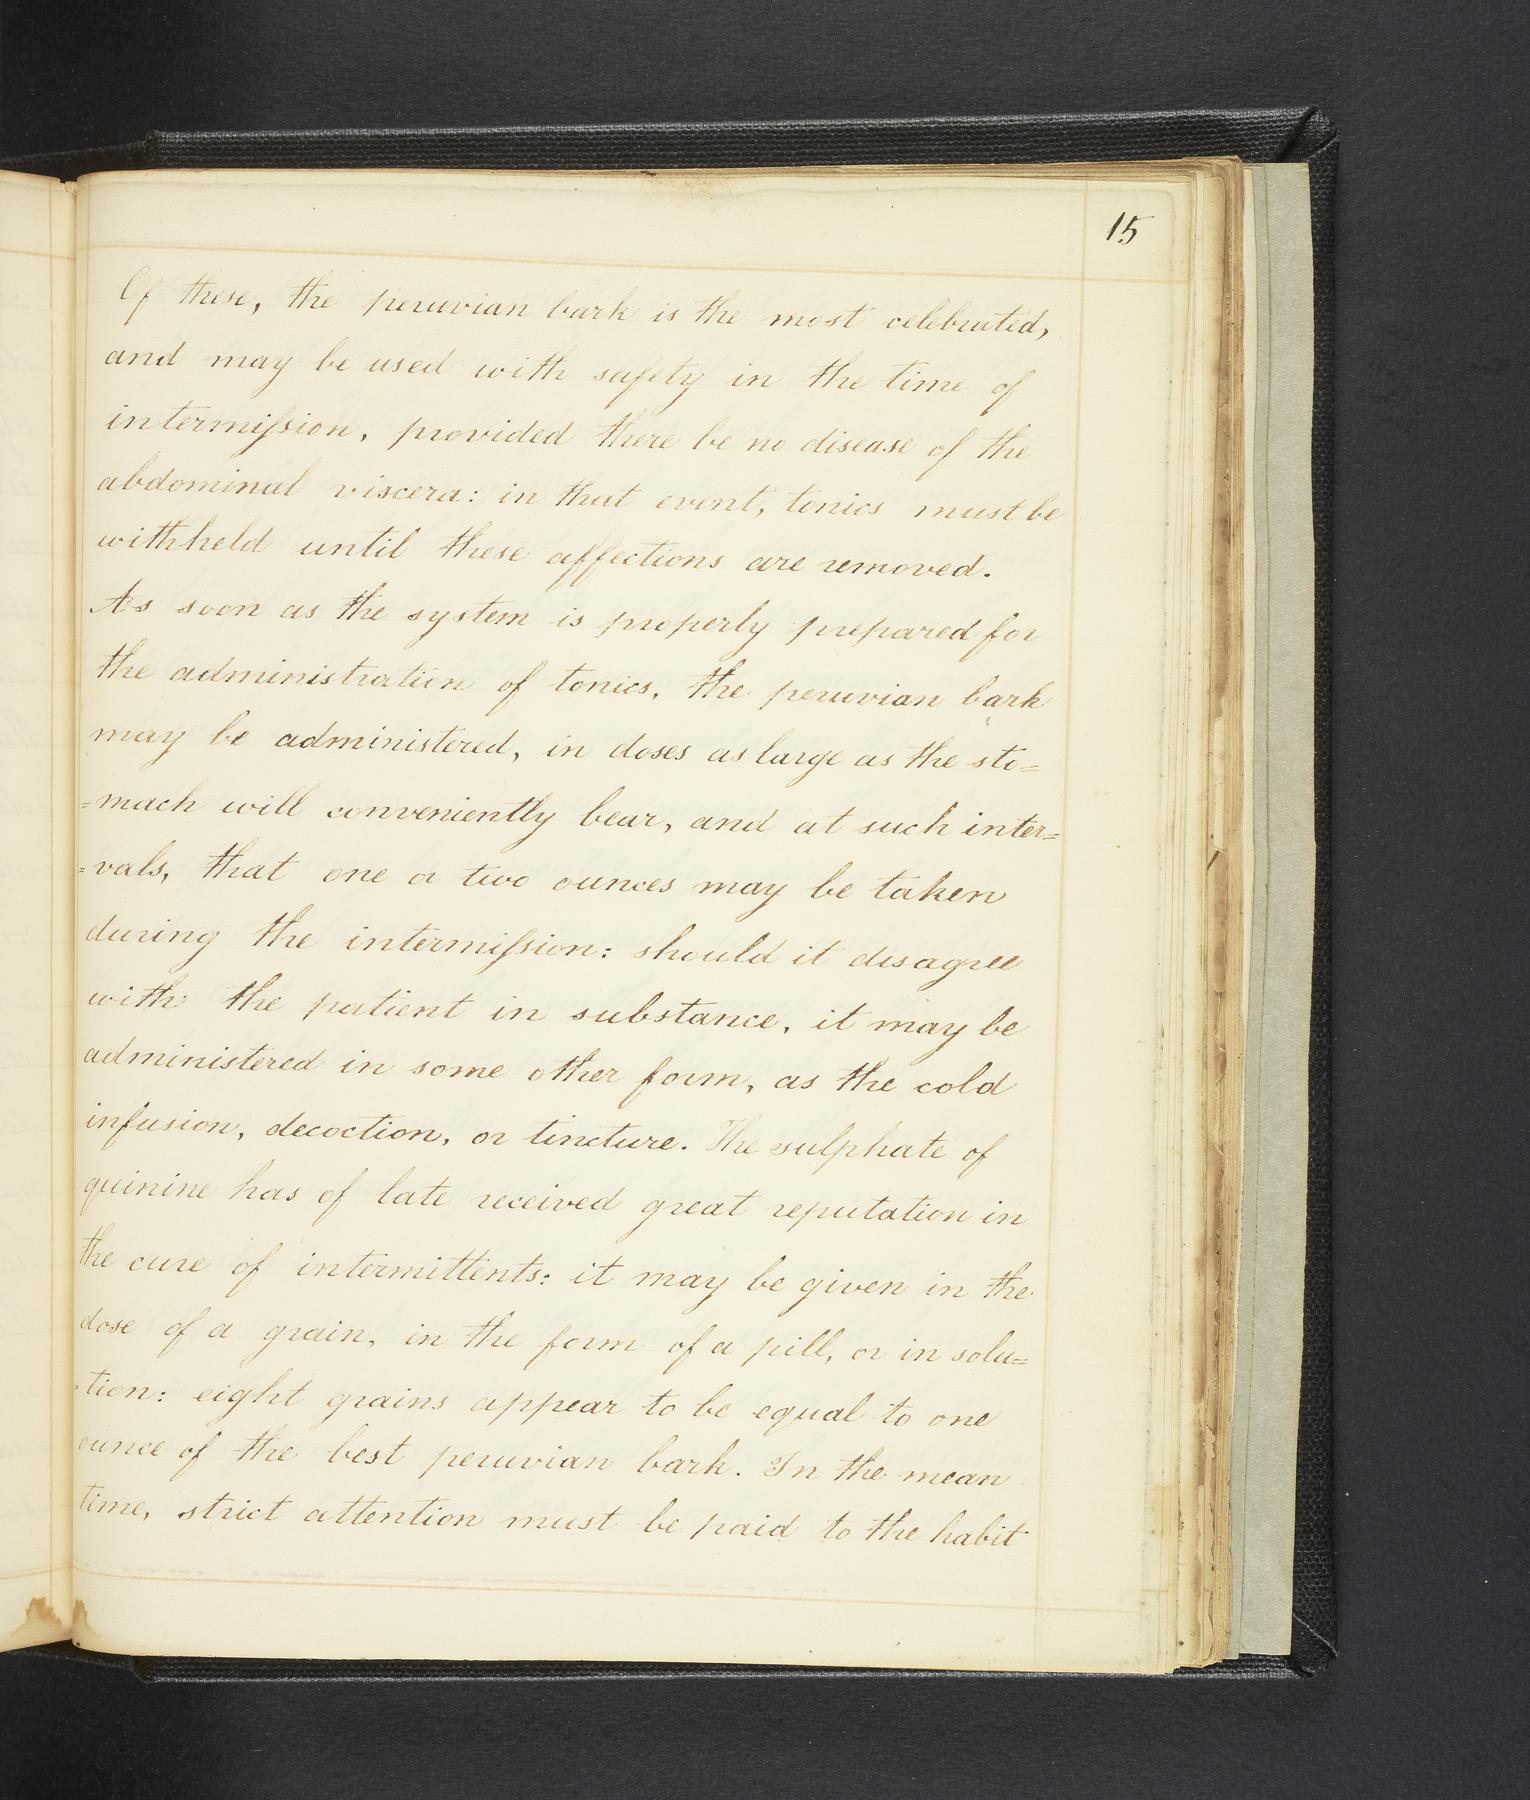 15
Of these, the peruvian bark is the most celebrated,
and may be used with safety in the time of
intermiſsion, provided there be no disease of the
abdominal viscera: in that event, tonics must be
withheld until these affections are removed.
As soon as the system is properly prepared for
the administration of tonics, the peruvian bark
may be administered, in doses as large as the sto=
=mach will conveniently bear, and at such inter=
=vals, that one or two ounces may be taken
during the intermiſsion: should it disagree
with the patient in substance, it may be
administered in some other form, as the cold
infusion, decoction, or tincture. The sulphate of
quinine has of late received great reputation in
the cure of intermittents: it may be given in the
dose of a grain, in the form of a pill, or in solu=
=tion: eight grains appear to be equal to one
ounce of the best peruvian bark. In the mean
time, strict attention must be paid to the habit